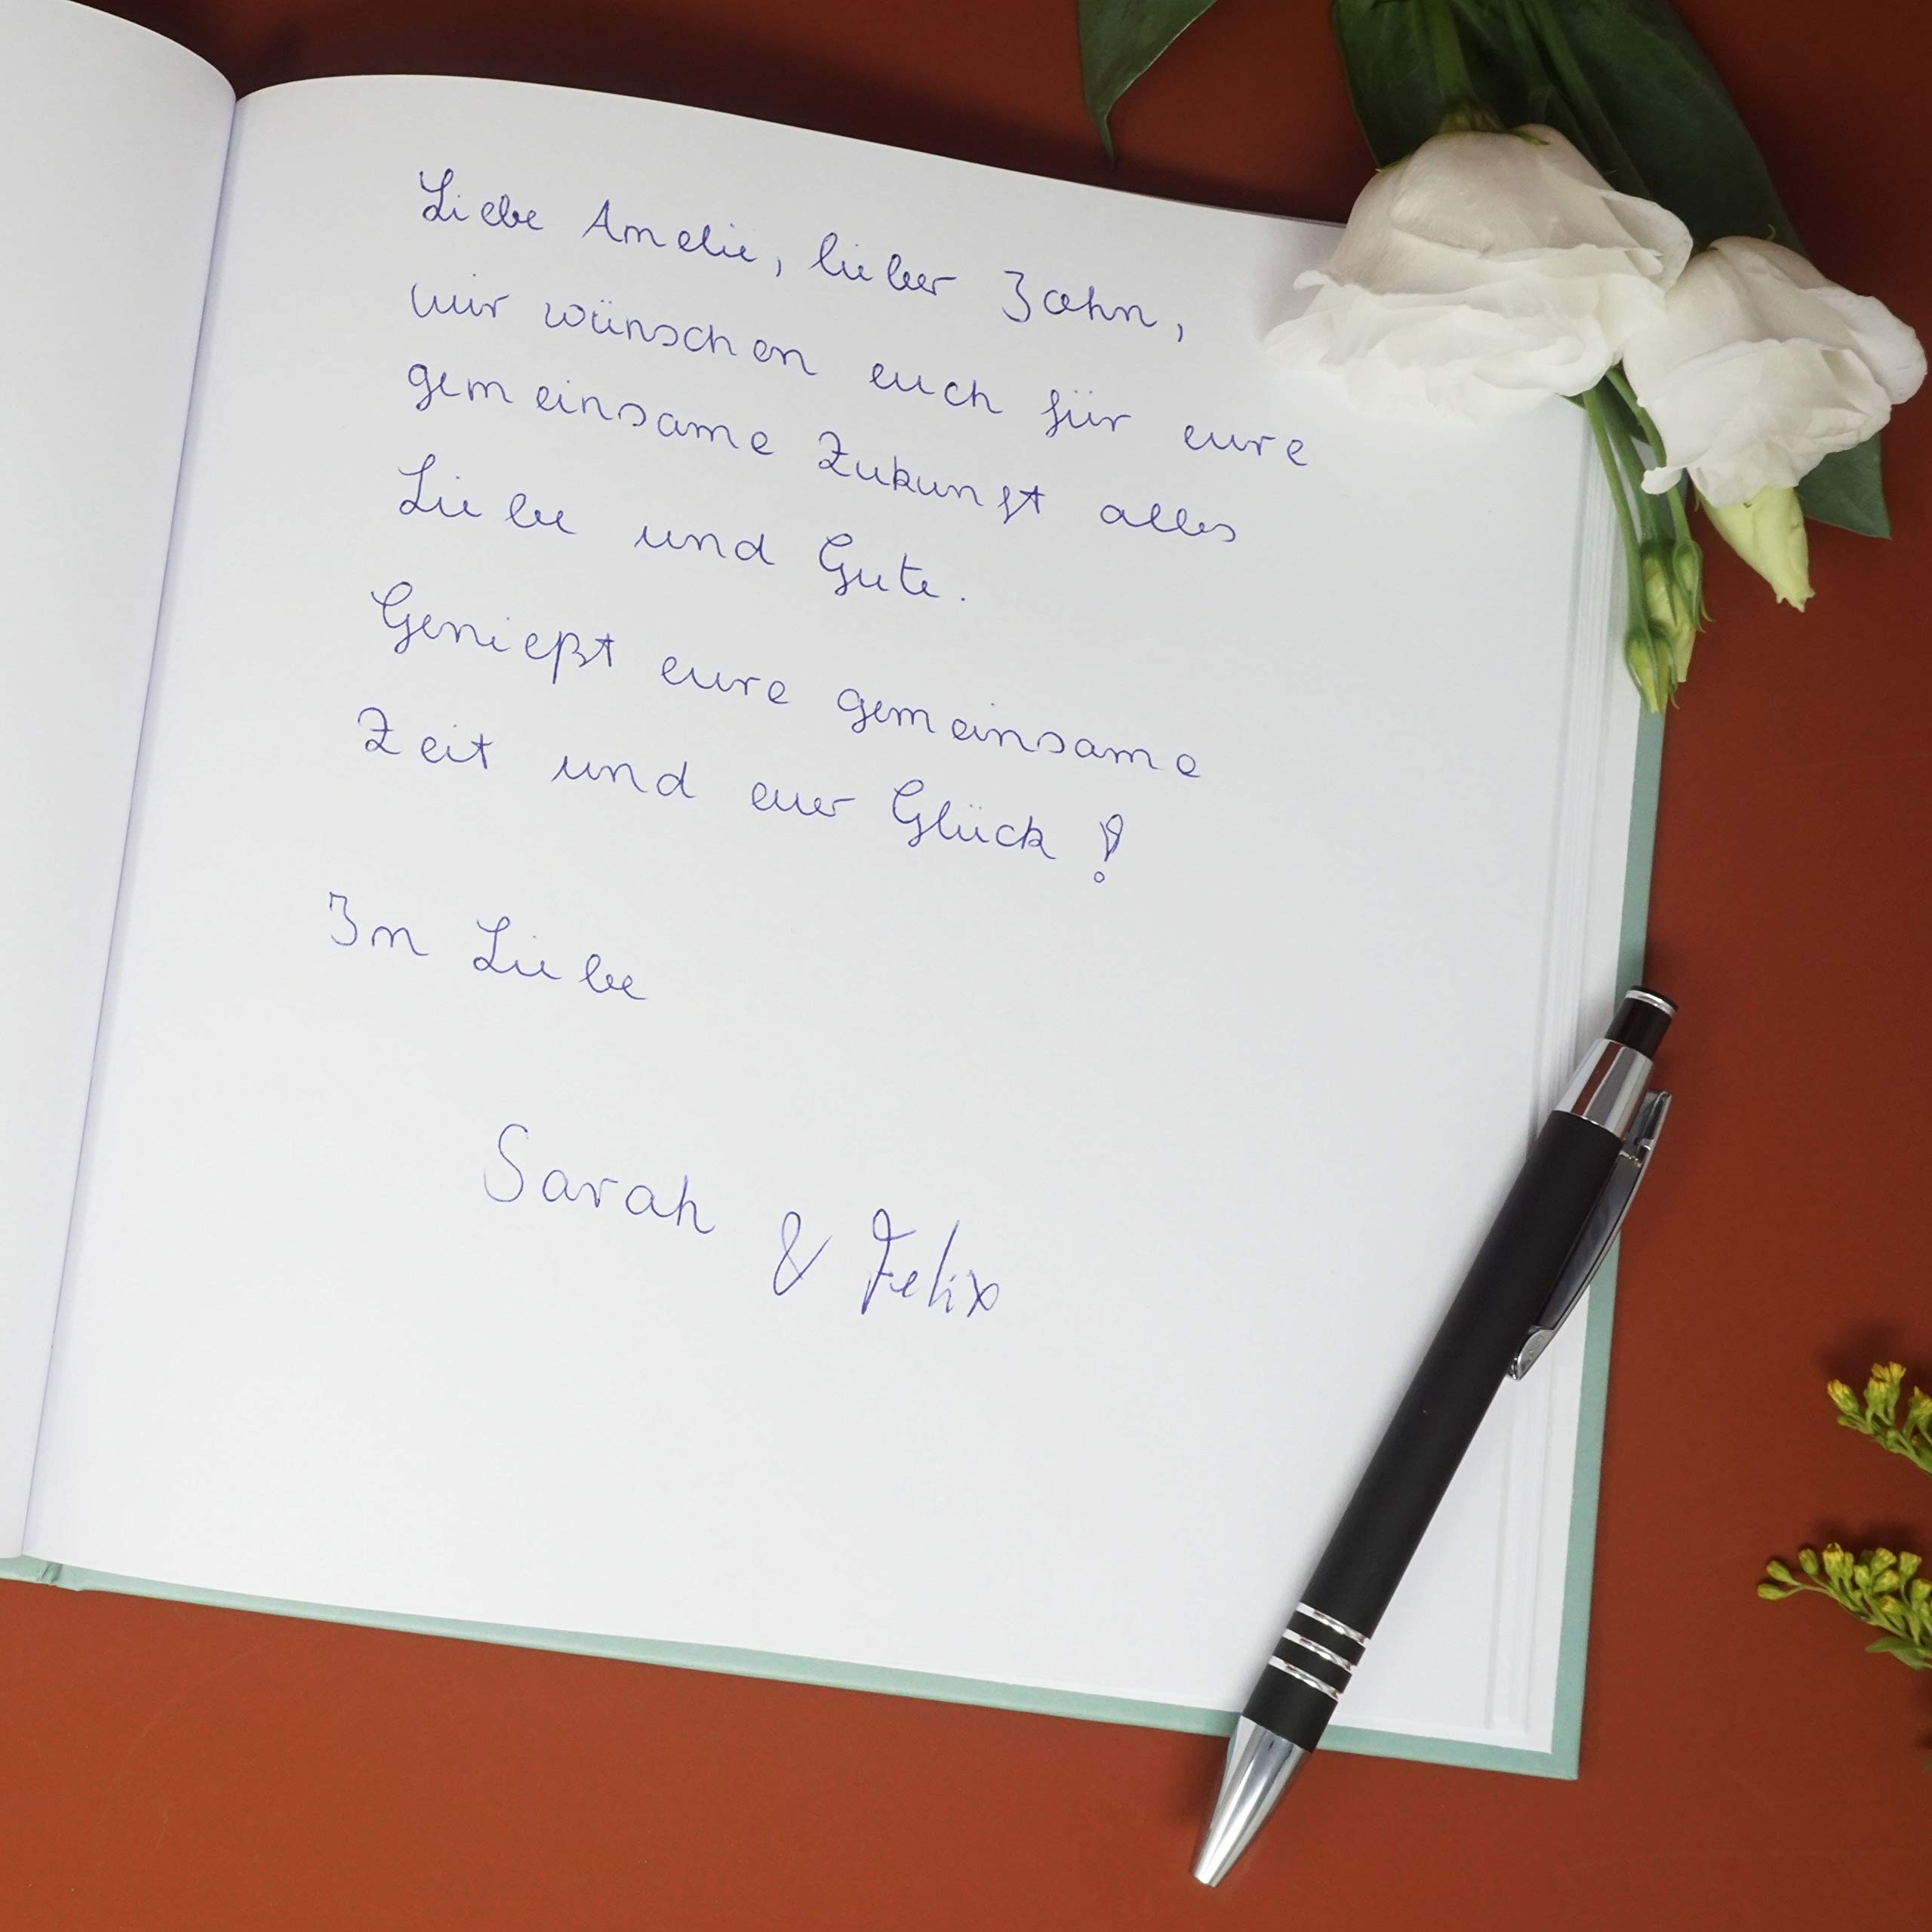 Liebe Amelie, lieber John,
wir wünschen euch für eure
gemeinsame Zukunft alles
Liebe und Gute.
Genießt eure gemeinsame
Zeit und euer Glück!
In Liebe
Sarah & Felix